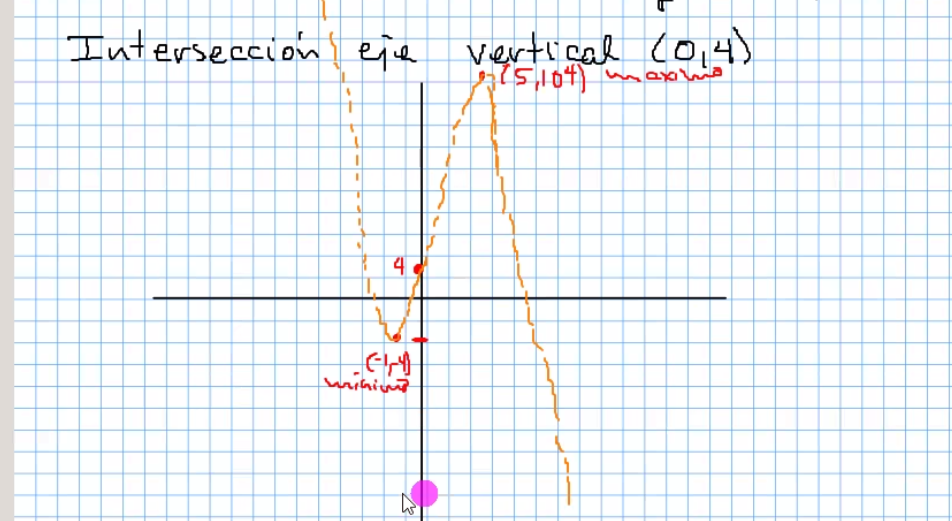 Intersección eje vertical (0,4)
(5,104) maximo
4
(-1,-4)
minimo